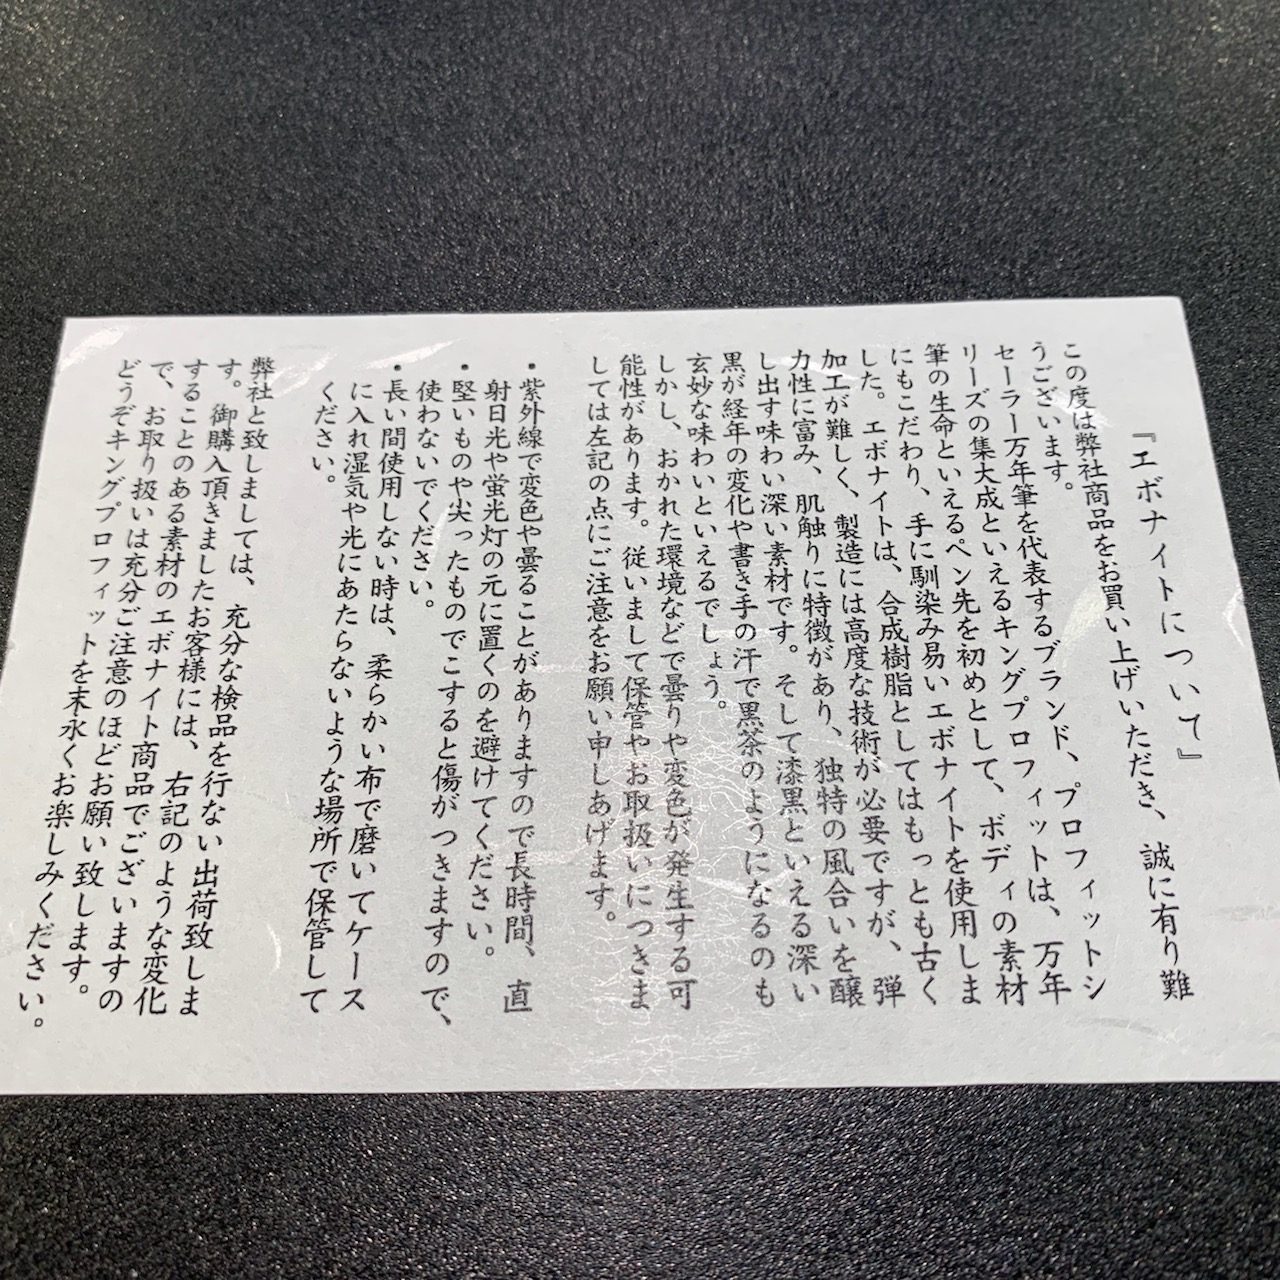 『エボナイトについて』
この度は弊社商品をお買い上げいただき、誠に有り難
うございます。
セーラー万年筆を代表するブランド、プロフィットシ
リーズの集大成といえるキングプロフィットは、万年
筆の生命といえるペン先を初めとして、ボディの素材
にもこだわり、手に馴染み易いエボナイトを使用しま
した。エボナイトは、合成樹脂としてはもっとも古く
加工が難しく、製造には高度な技術が必要ですが、弾
力性に富み、肌触りに特徴があり、独特の風合いを醸
し出す味わい深い素材です。そして漆黒といえる深い
黒が経年の変化や書き手の汗で黒茶のようになるのも
玄妙な味わいといえるでしょう。
しかし、おかれた環境などで曇りや変色が発生する可
能性があります。従いまして保管やお取扱いにつきま
しては左記の点にご注意をお願い申しあげます。
・紫外線で変色や曇ることがありますので長時間、直
射日光や蛍光灯の元に置くのを避けてください。
・堅いものや尖ったものでこすると傷がつきますので、
使わないでください。
・長い間使用しない時は、柔らかい布で磨いてケース
に入れ湿気や光にあたらないような場所で保管して
ください。
弊社と致しましては、充分な検品を行ない出荷致しま
す。御購入頂きましたお客様には、右記のような変化
することのある素材のエボナイト商品でございますの
で、お取り扱いは充分ご注意のほどお願い致します。
どうぞキングプロフィットを末永くお楽しみください。